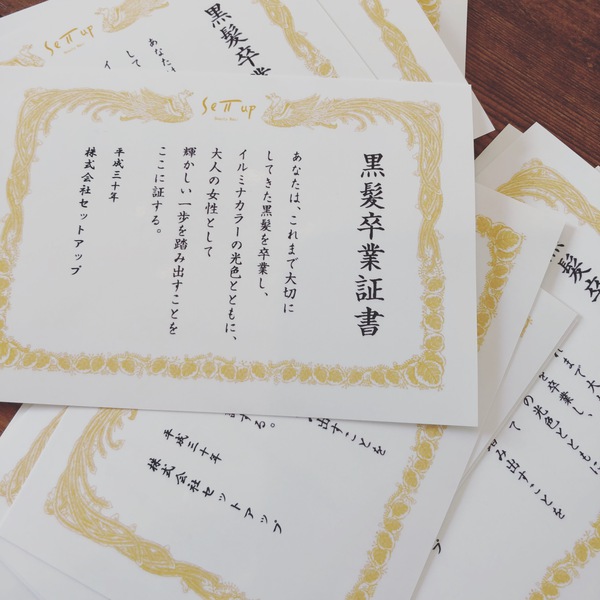 Seπup
黒髪卒業証書
あなたは、これまで大切に
してきた黒髪を卒業し、
イルミナカラーの光色とともに、
大人の女性として
輝かしい一歩を踏み出すことを
ここに証する。
平成三十年
株式会社セットアップ
Seπup
黒髪卒業
あなたは
して
イ
する。
出すことを
平成三十年
株式会社セットアップ
黒髪卒
まで大
を卒業し、
の光色とともに
て
み出すことを